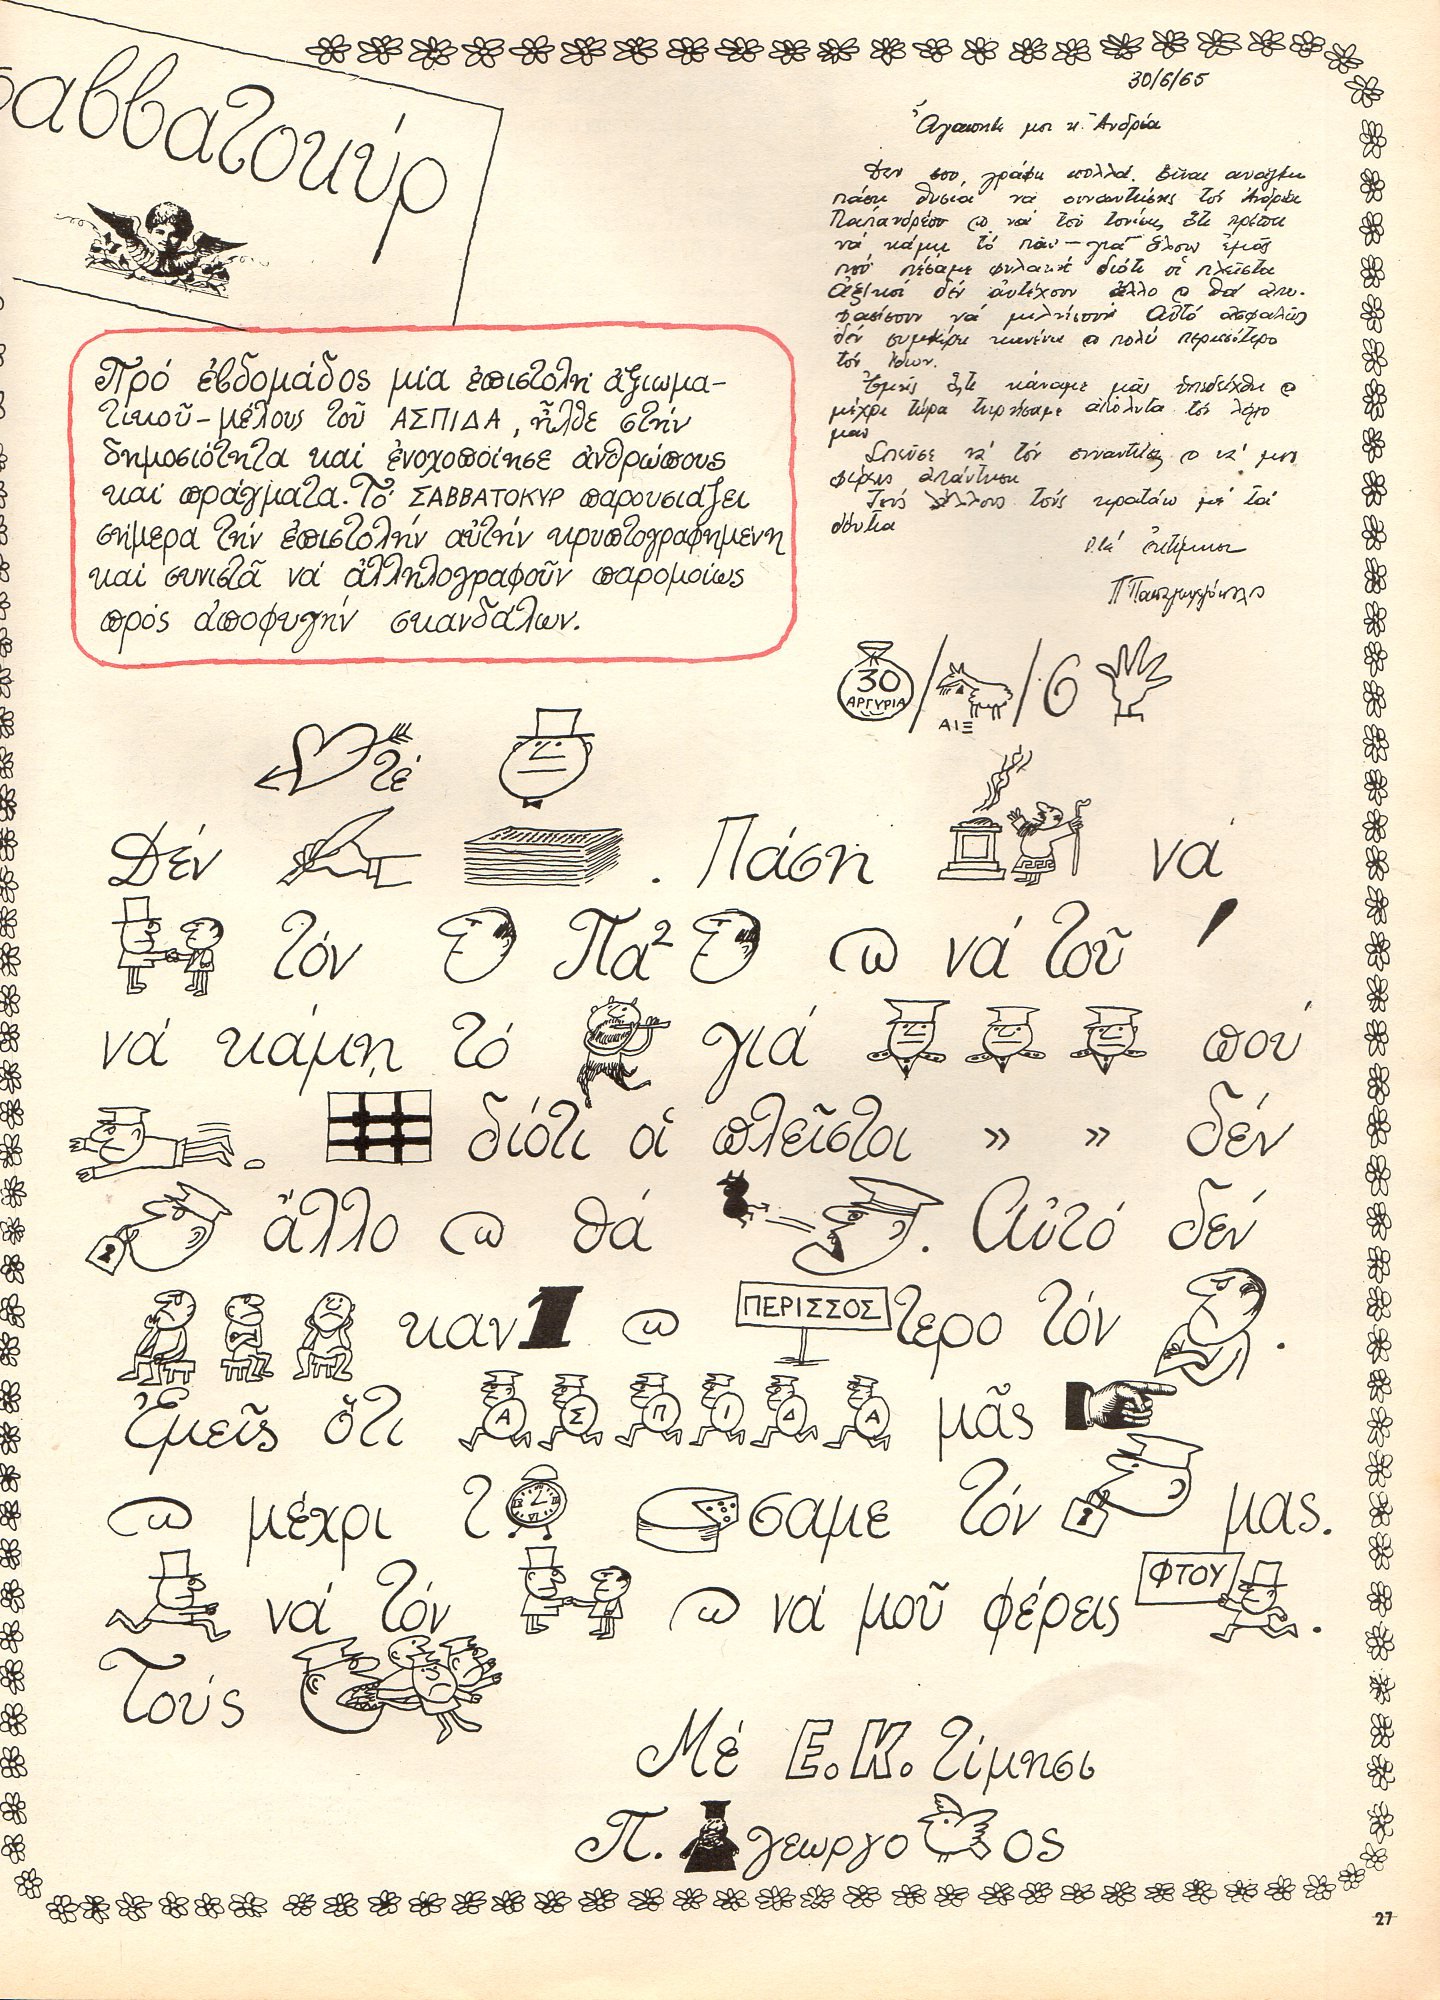 Σαββατοκύρ
Πρό ἑβδομάδος μία ἐπιστολή ἀξιωμα-
τικοῦ-μέλους τοῦ ΑΣΠΙΔΑ, ἦλθε στήν
δημοσιότητα καί ἐνοχοποίησε ἀνθρώπους
καί πράγματα. Τό ΣΑΒΒΑΤΟΚΥΡ παρουσιάζει
σήμερα τήν ἐπιστολήν αὐτήν κρυπτογραφημένη
καί συνιστᾶ νά ἀλληλογραφοῦν παρομοίως
πρός ἀποφυγήν σκανδάλων.
30/6/65
Ἀγαπητέ μοι κ. Ἀνδρέα
Δεν σου γράφω πολλά. Είναι ανάγκη
πάση θυσία να συναντήσης τον Ἀνδρέα
Παπανδρέου ϖ να του τονίσης ὅτι πρέπει
νά κάμη τό πᾶν - γιά ὅλους ἐμᾶς
πού πέσαμε φυλακή διότι οἱ πλεῖστοι
ἀξ/κοί δέν ἀντέχουν ἄλλο ϖ θά απο-
φασίσουν νά μιλήσουν. Αὐτό ασφαλῶς
δέν συμφέρει κανένα ϖ πολύ περισσότερο
τον ίδιον.
Ἐμεῖς ὅτι κάναμε μᾶς ὑπεδείχθη ϖ
μέχρι τώρα τηρήσαμε απόλυτα τον λόγο
μας
Σπεῦσε νά τόν συναντήσης ϖ νά μου
φέρεις απάντηση
Τούς ἄλλους τούς κρατάω μέ τά
δόντια
Μέ ἐκτίμηση
Π Παπαγεωργόπουλος
30 ΑΡΓΥΡΙΑ / ΑΙΞ / 6
τέ
Δέν . Πάση νά
τόν Πα2 ϖ νά τοῦ '
νά κάμη τό γιά πού
. διότι οἱ πλεῖστοι » » δέν
ἄλλο ϖ θά . Αὐτό δέν
καν1 ϖ ΠΕΡΙΣΣΟΣτερο τόν .
Ἐμεῖς ὅτι Α Σ Π Ι Δ Α μᾶς
ϖ μέχρι τ σαμε τόν μας.
νά τόν ϖ νά μοῦ φέρεις ΦΤΟΥ .
Τούς
Μέ Ε.Κ.τίμησι
Π. γεωργο ος
27